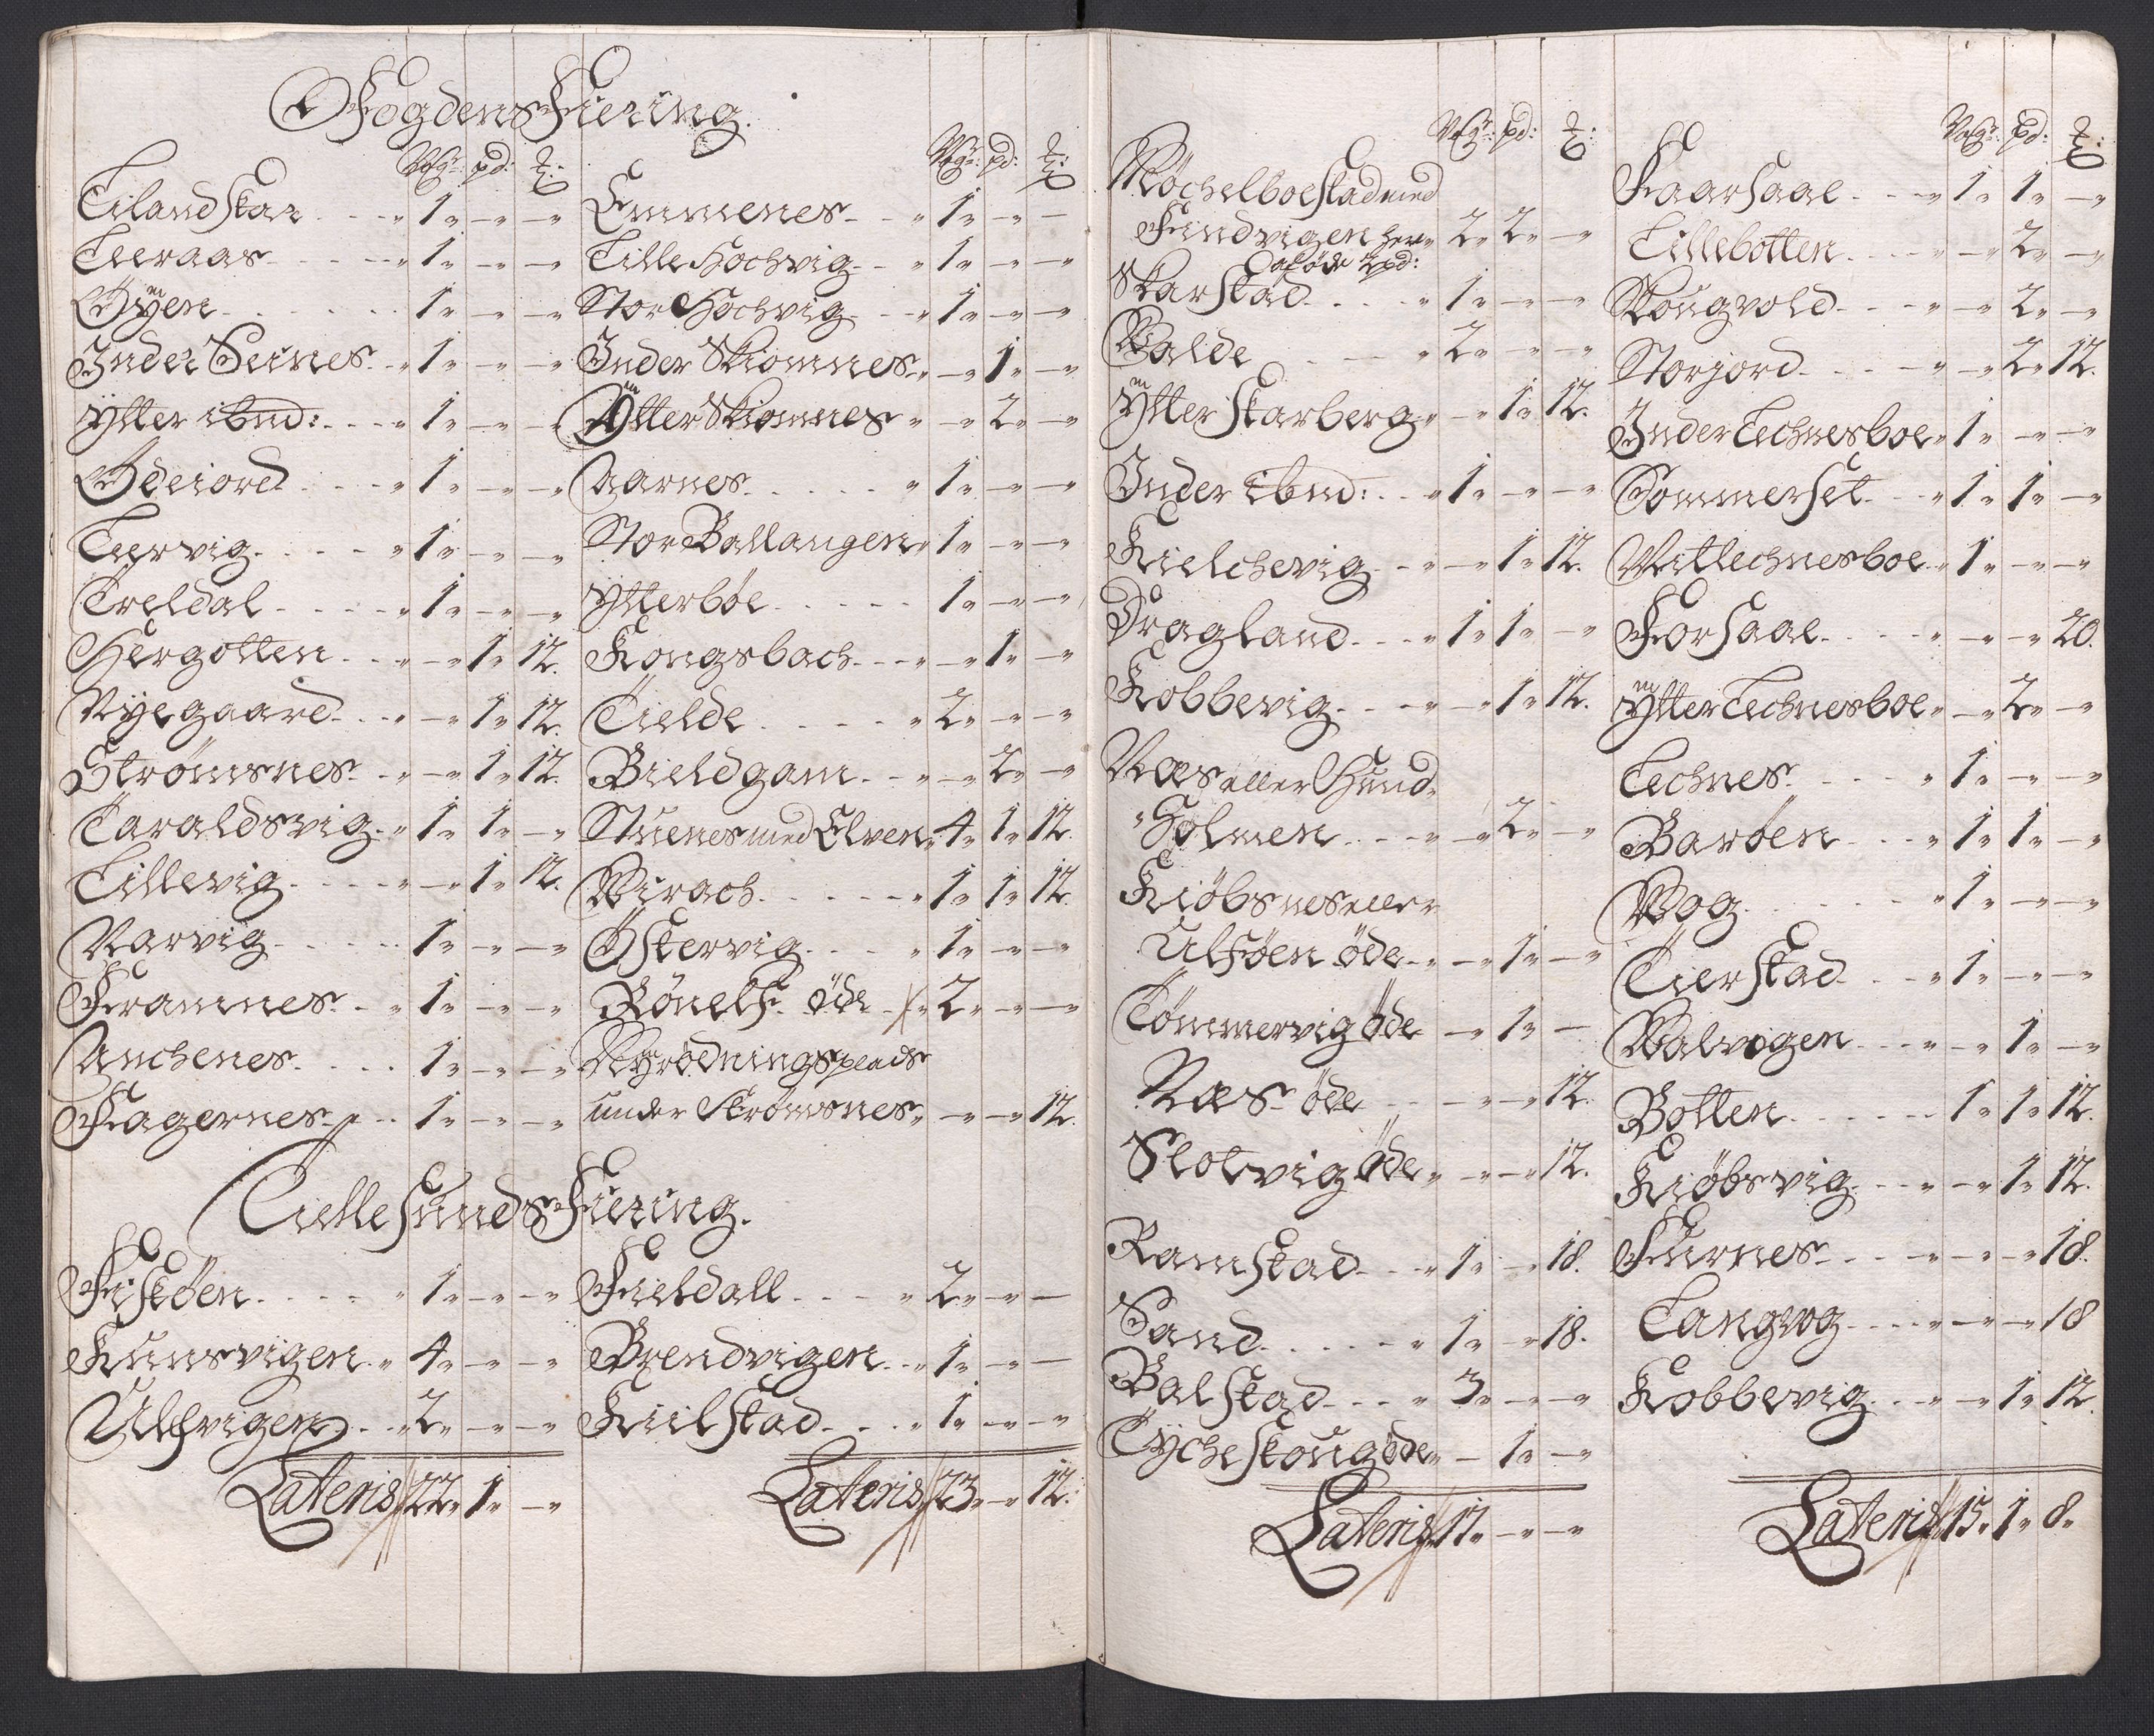 Fogdens Fiering.
Wog: pd: ℔:
Lilandskar 1 - -
Leeraas 1 - -
Øÿen 1 - -
Inder Seines 1 - -
Ytter ibnd: 1 - -
Ødeiord 1 - -
Leervig 1 - -
Treldal 1 - -
Hergotten - 1 12.
Nyegaard - 1 12.
Strømsnes - 1 12.
Taraldsvig 1 1 -
Lillevig - 1 12.
Narvig 1 - -
Framnes 1 - -
Anchenes 1 - -
Fagernes 1 - -
Wog: pd: ℔:
Emmenes 1 - -
Lille Hochvig 1 - -
Stor Hochvig 1 - -
Inder Skiomnes - 1 -
Ytter Skiomnes - 2 -
Aarnes 1 - -
Stor Ballangen 1 - -
Ytterbøe 1 - -
Kongsbach - 1 -
Tielde 2 - -
Bieldgam - 2 -
Stuenes med Elven 4 1 12.
Virach 1 1 12.
Østervig 1 - -
Rønelf øde 2 - -
Nyrødningsplads
under Strømsnes - - 12.
Tiellesunds Fiering.
Fiskøen 1 - -
Kunsvigen 4 - -
Ulfvigen 2 - -
Lateris 22 1 -
Fieldall 2 - -
Brendvigen 1 - -
Kiilstad 1 - -
Lateris 23 - 12.
Wog: pd: ℔:
Møchelboestad med
Findvigen her 2 2 -
af øde 2 pd:
Skarstad 1 - -
Balde 2 - -
Ytter Skarberg - 1 12.
Inder ibnd: 1 - -
Kielchevig - 1 12.
Dragland 1 1 -
Kobbevig - 1 12.
Næs eller Hund-
Holmen - 2 -
Kiøbsnes eller
Ulføen øde - 1 -
Tømmervig øde - 1 -
Næs øde - - 12.
Slotvig øde - - 12.
Ramstad 1 - 18.
Sand 1 - 18.
Balstad 3 - -
Tyche Skoug øde - 1 -
Lateris 17 - -
Wog: pd: ℔:
Kaarsaae 1 1 -
Lillebotten - 2 -
Skougvold - 2 -
Storjord - 2 12.
Inder Lechnesboe 1 - -
Sommerset 1 1 -
Mitlechnesboe 1 - -
Forsaae - - 20.
Ytter Lechnesboe - 2 -
Lechnes 1 - -
Barøen 1 1 -
Wog 1 - -
Lierstad 1 - -
Walvogen - 1 -
Botten 1 1 12.
Kiøbsvig - 1 12.
Furnes - - 18.
Langvog - - 18
Kobbevig - 1 12.
Lateris 15 1 8